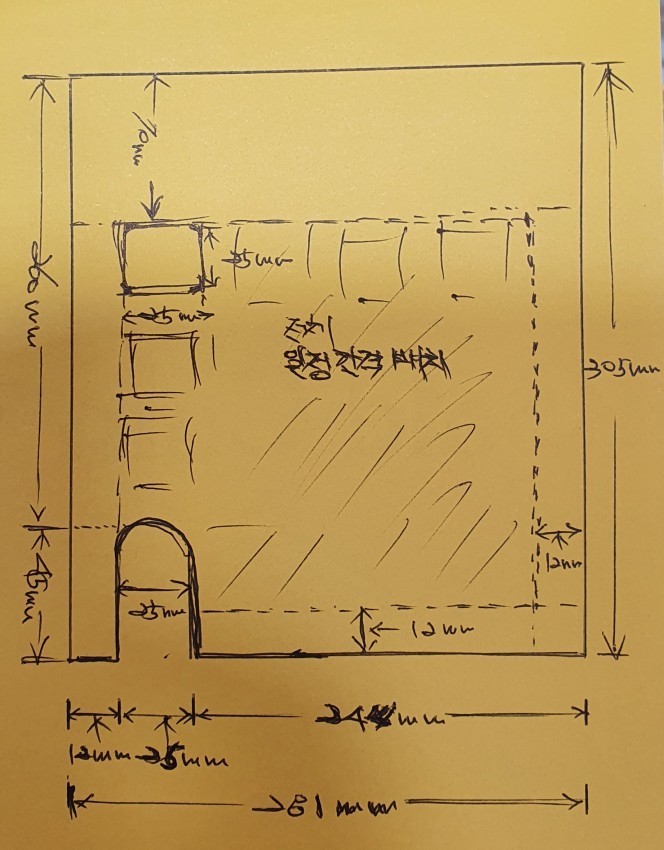 70mm
260mm
25mm
25mm
일정 간격 배치
305mm
45mm
25mm
12mm
12mm
12mm
25mm
281mm